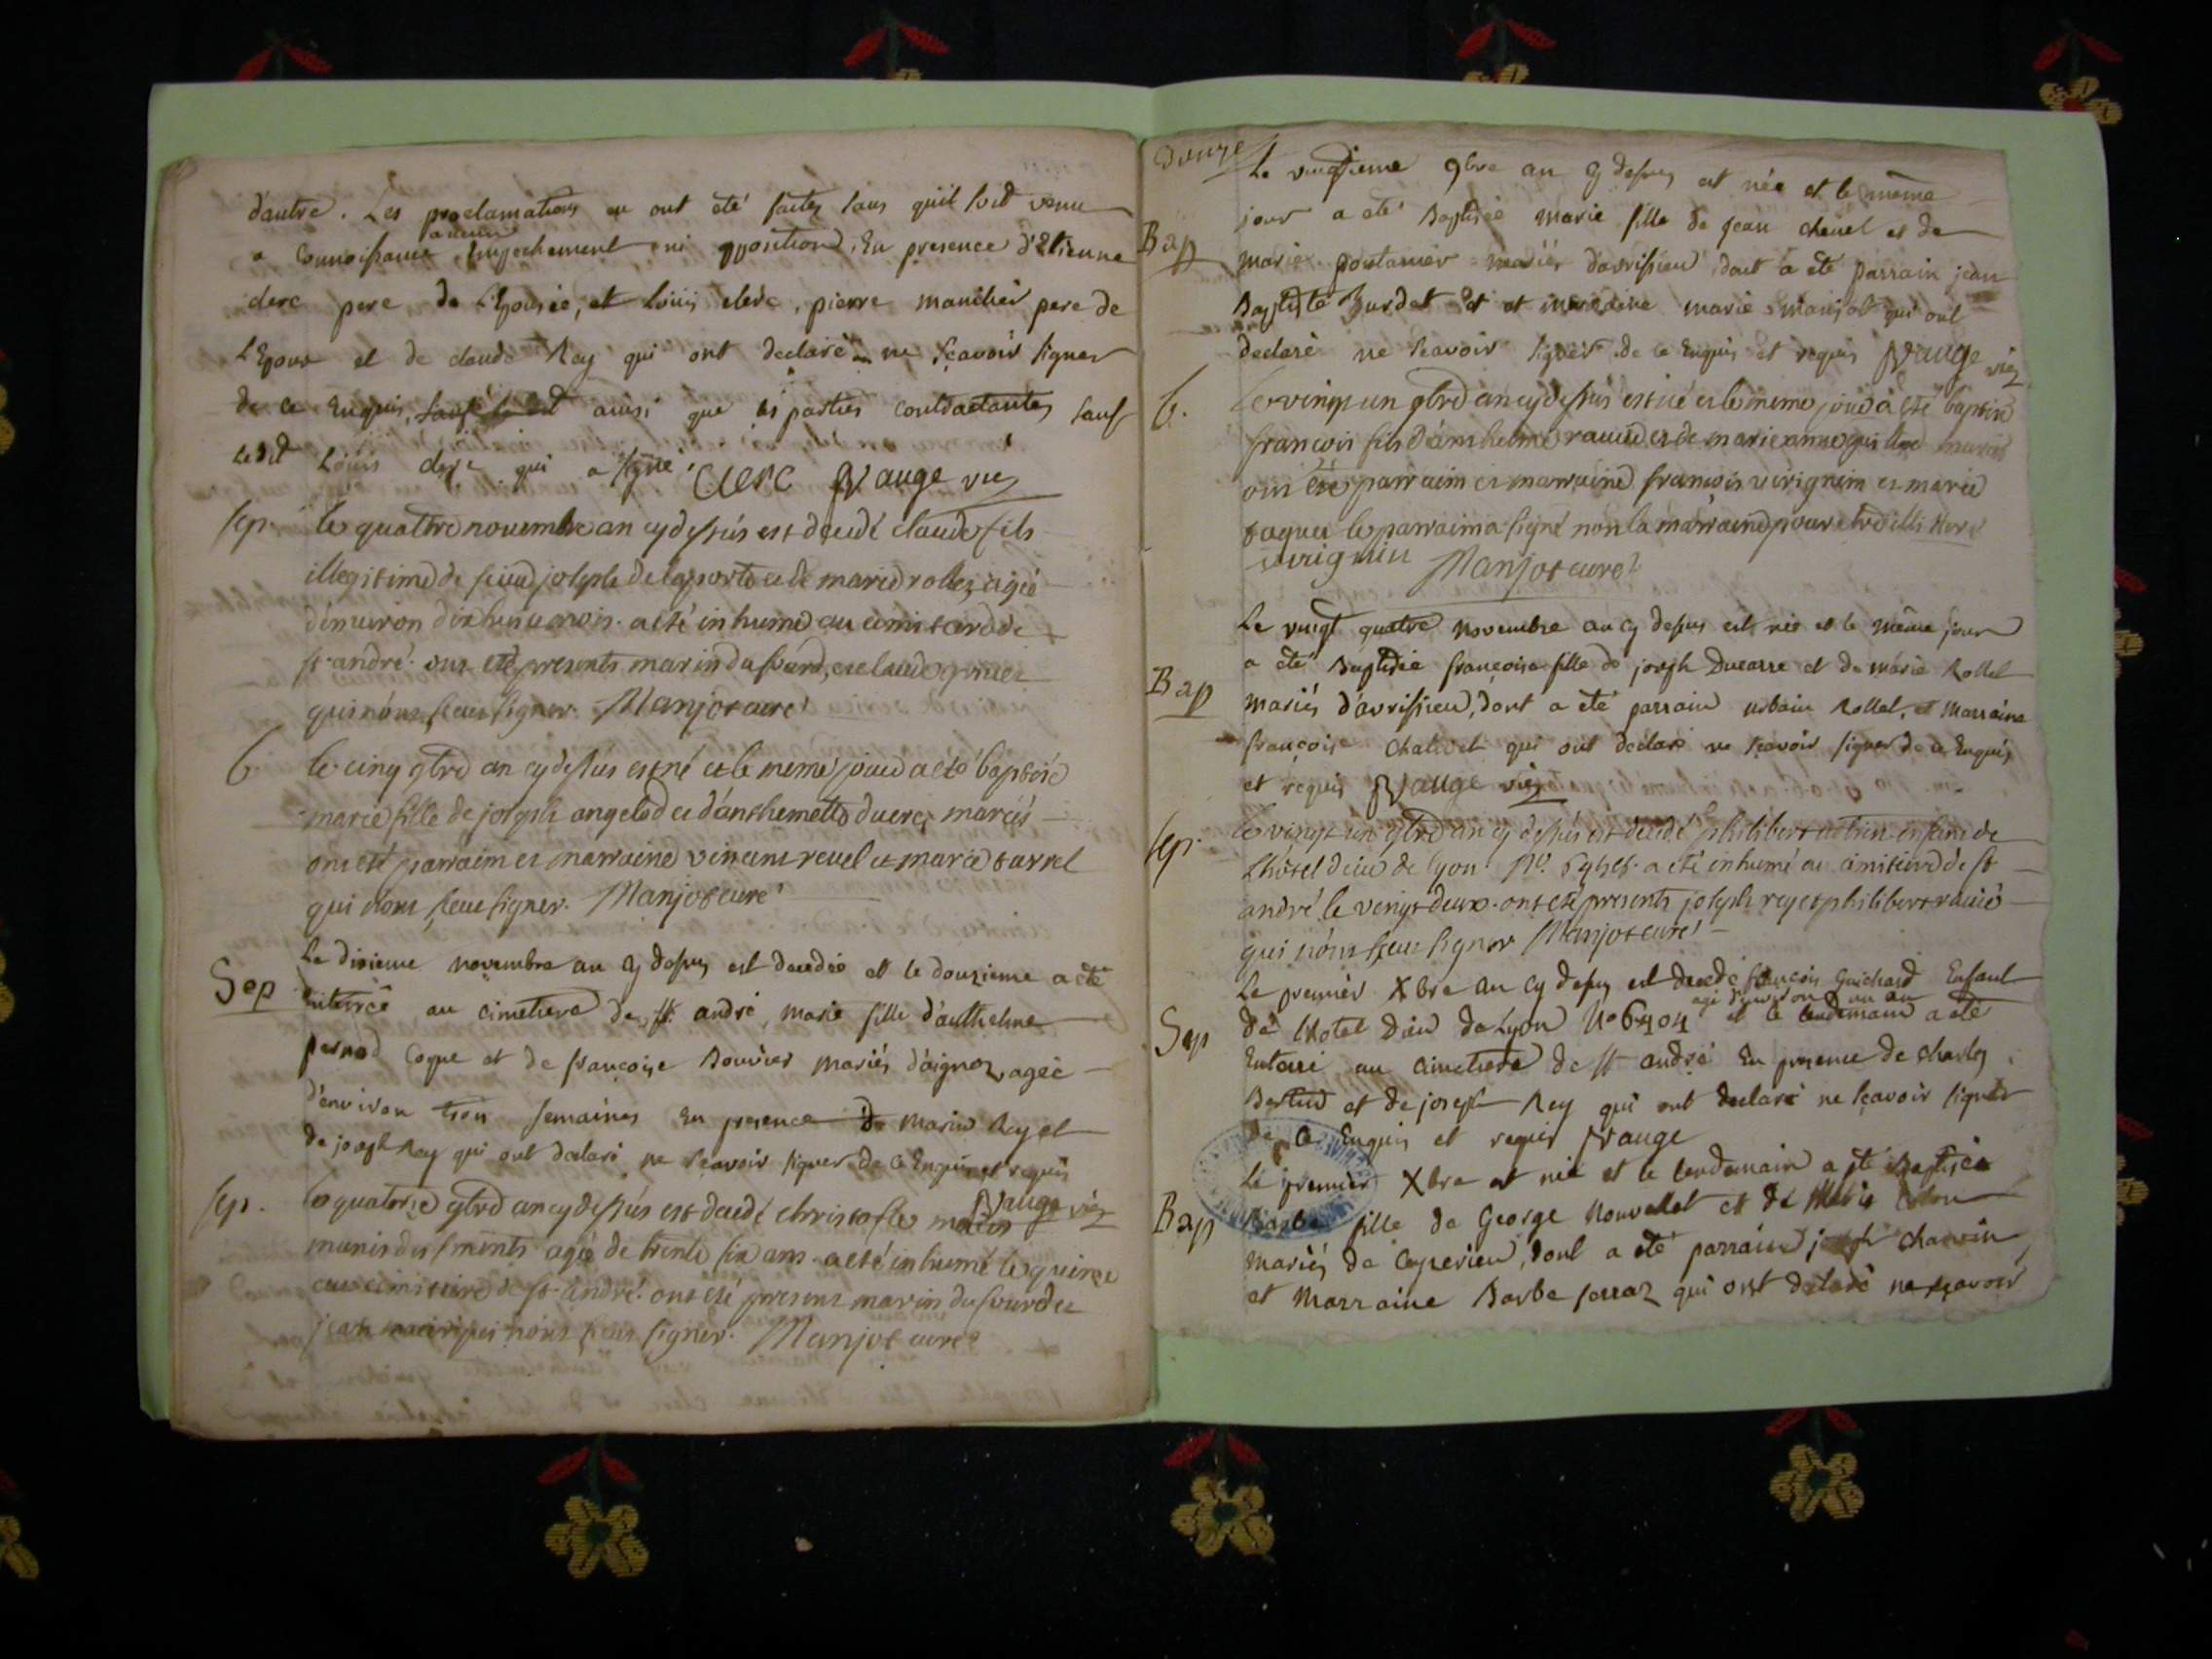 d'autre. Les proclamations en ont été faites sans qu'il soit venu
a Connoissance aucun Empechement ni opposition, En presence d'Etienne
clerc pere de L'Epousée, et Loüis clerc, pierre manchér pere de
L'Epoux et de claude Rey qui ont declaré ne sçavoir signer
de ce Enquis, ainsi que les parties Contractantes sauf
Ledit Loüis clerc qui a signé. Clerc Vauge vic
Sep. le quattre novembre an cy dessus est decedé claude fils
illegitime de joseph delaporte et de marie rollez agé
d'environ dixhuit mois. a eté inhumé au cimitere de
st. andré. ont eté presents marin dufourd, et claude
qui n'ont sceu signer. Manjot curé
b le cinq 9bre an cy dessus est né et le meme jour a eté baptisé
marie fille de joseph angelod et d'anthemette ducrez mariés
ont eté parraim et marraine vincent revel et marie
qui n'ont sceu signer. Manjot curé
Sep Le dixieme novembre an cy dessus est decedée et le douzieme a été
Enterrée au cimetiere de st. andré, marie fille d'anthelme
pernod Coque et de françoise Bouvier mariés d'aignoz, agée
d'environ trois semaines En presence de marin Rey et
de joseph Rey qui ont declaré ne sçavoir signer de ce Enquis et requis
Vauge vic
Sep. le quatorze 9bre an cy dessus est decedé christofle
munis des sments agé de trente six ans. a eté inhumé le quinze
au cimitiere de st. andré. ont eté presens marin dufourd et
jean qui n'ont sceu signer. Manjot curé
Douze
Le vingtieme 9bre an cy dessus est née et le même
Bap jour a eté Baptisée marie fille de jean chenel et de
marie mariés d'avrissieu dont a été parrain jean
Baptiste Burdet et marraine marie manjot qui ont
declaré ne sçavoir signer de ce Enquis et requis Vauge vic
b. le vingt un 9bre an cy dessus est né et le meme jour a eté baptisé
francois fils d'anthelme et de marie anne mariés
ont eté parraim et marraine francois virignin et marie
le parraim a signé non la marraine pour etre illittere
virignin Manjot curé
Le vingt quatre novembre an cy dessus est née et le même jour
Bap a été Baptisée françoise fille de joseph Ducarre et de marie Rollet
mariés d'avrissieu, dont a été parrain urbain Rollet, et Marraine
françoise qui ont declaré ne sçavoir signer de ce Enquis
et requis Vauge vic
Sep. le vingt un 9bre an cy dessus est decedé philibert enfant de
Lhôtel dieu de lyon No. a eté inhumé au cimitiere de st
andré le vingt deux. ont eté presents joseph rey et philibert
qui n'ont sceu signer Manjot curé
Le premier Xbre an cy dessus est decedé françois Guichard Enfant
Sep de Lhotel Dieu de Lyon No 6404 agé d'environ un an et le lendemain a eté
Enterré au cimetiere de st andré En presence de charles
et de joseph Rey qui ont declaré ne sçavoir signer
de ce Enquis et requis Vauge
Le premier Xbre est née et le lendemain a été Baptisée
Bap Barbe fille de George Nouvellet et de Marie
mariés de Ceyzerieu, dont a été parrain joseph
et Marraine Barbe ferraz qui ont declaré ne sçavoir